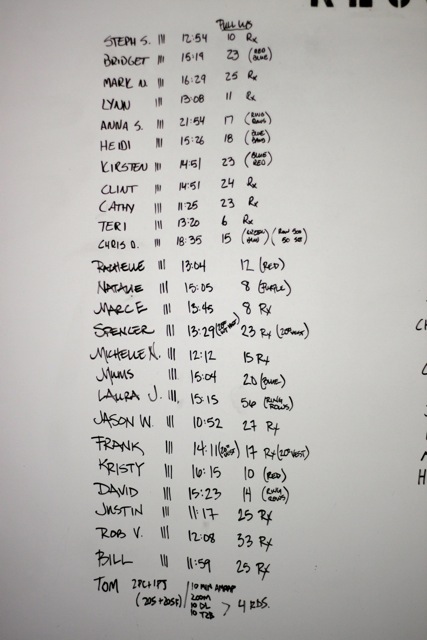 PULL UPS
STEPH S. III 12:54 10 Rx
BRIDGET III 15:19 23 (RED BLUE)
MARK N. III 16:29 25 Rx
LYNN III 13:08 11 Rx
ANNA S. III 21:54 17 (RING ROWS)
HEIDI III 15:26 18 (BLUE BAND)
KIRSTEN III 14:51 23 (BLUE RED)
CLINT III 14:51 24 Rx
CATHY III 11:25 23 Rx
TERI III 13:20 6 Rx
CHRIS O. III 18:35 15
RACHELLE III 13:04 12 (RED)
NATALIE III 15:05 8 (PURPLE)
MARC E III 13:45 8 Rx
SPENCER III 13:29 (20# VEST) 23 Rx (20# VEST)
MICHELLE N. III 12:12 15 Rx
MIMS III 15:04 20 (BLUE)
LAURA J. III 15:15 56 (RING ROWS)
JASON W. III 10:52 27 Rx
FRANK III 14:11 (20# VEST) 17 Rx (20# VEST)
KRISTY III 16:15 10 (RED)
DAVID III 15:23 14 (RING ROWS)
JUSTIN III 11:17 25 Rx
ROB V. III 12:08 33 Rx
BILL III 11:59 25 Rx
TOM 2PC+1PJ (205+205F) / 10 MIN AMRAP
200M
10 DL
10 T2B > 4 RDS.